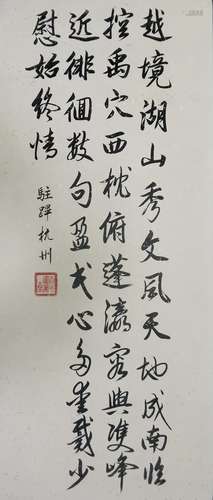 越境湖山秀文風天地成南臨
控禹穴西枕俯蓬瀛容與雙峰
近徘徊數句盈我心多愛戴少
慰始終情
駐蹕杭州